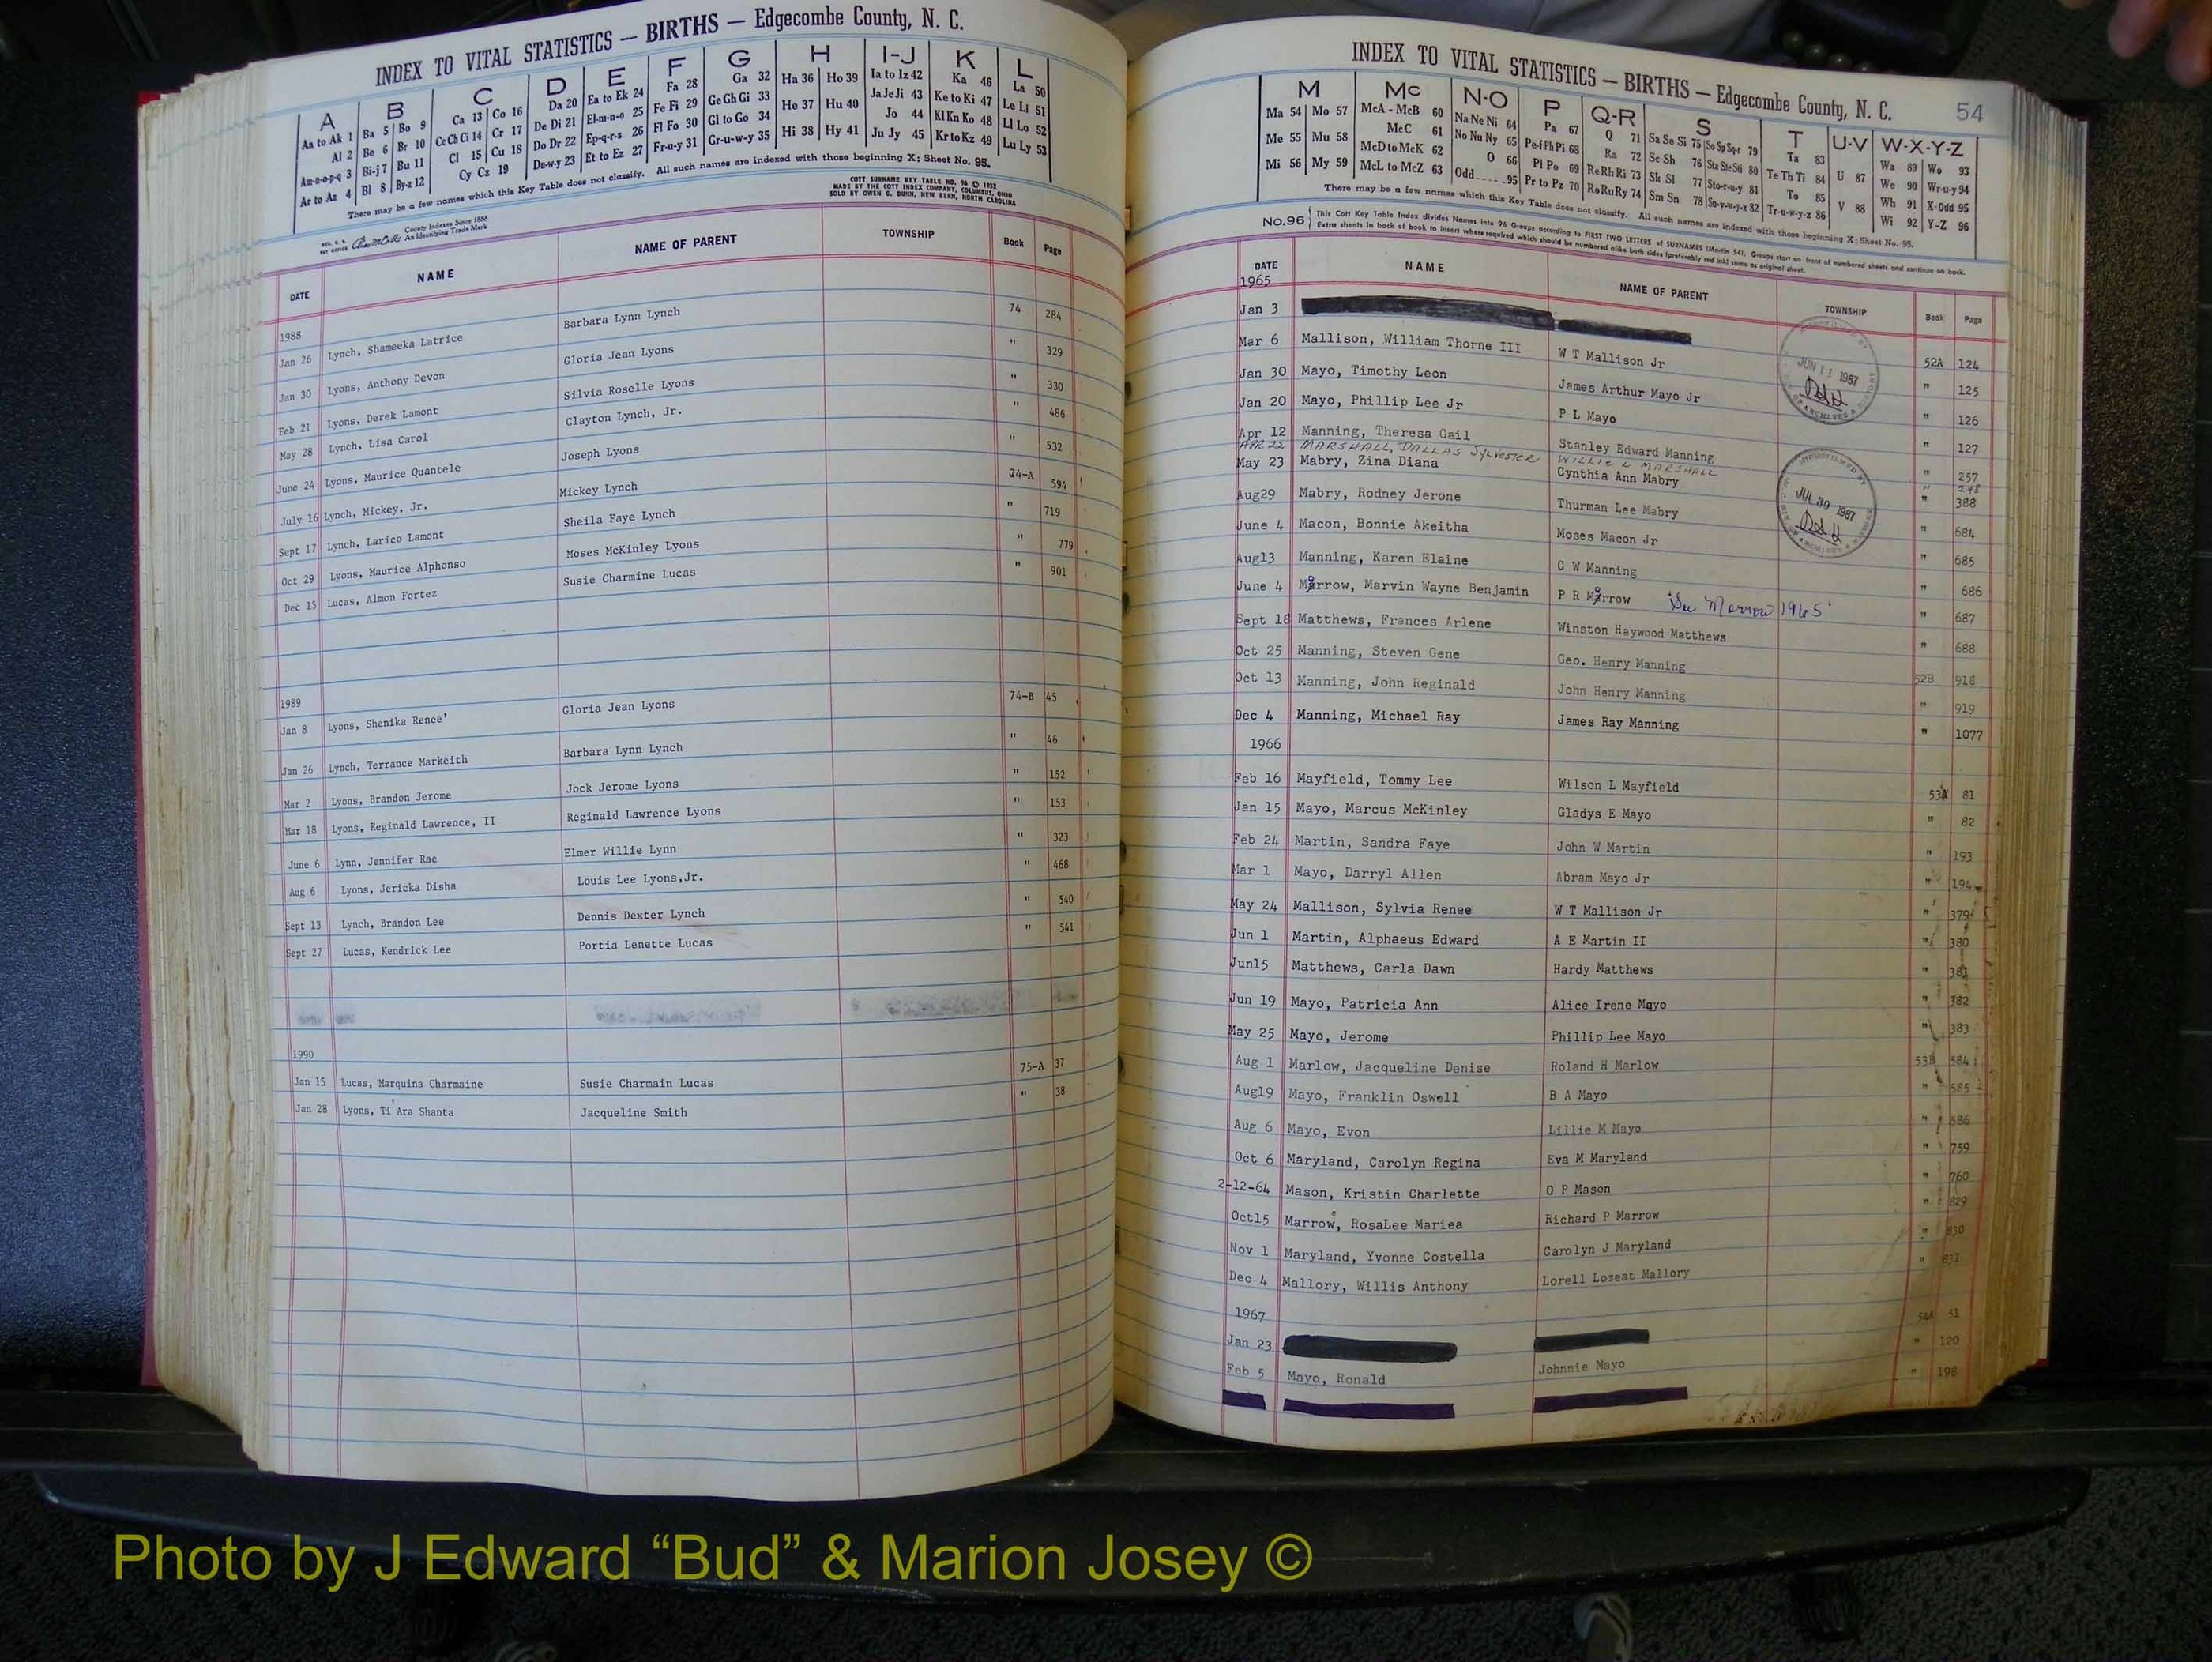 INDEX TO VITAL STATISTICS — BIRTHS — Edgecombe County, N. C.
A B C D E F G H I-J K L
Aa to Ak 1 Ba 5 Bo 9 Ca 13 Co 16 Da 20 Ea to Ek 24 Fa 28 Ga 32 Ha 36 Ho 39 Ia to Iz 42 Ka 46 La 50
Al 2 Be 6 Br 10 Ce Ch Ci 14 Cr 17 De Di 21 El-m-n-o 25 Fe Fi 29 Ge Gh Gi 33 He 37 Hu 40 Ja Je Ji 43 Ke to Ki 47 Le Li 51
Am-n-o-p-q 3 Bi-j 7 Bu 11 Cl 15 Cu 18 Do Dr 22 Ep-q-r-s 26 Fl Fo 30 Gl to Go 34 Hi 38 Hy 41 Jo 44 Kl Kn Ko 48 Ll Lo 52
Ar to Az 4 Bl 8 By-z 12 Cy Cz 19 Du-w-y 23 Et to Ez 27 Fr-u-y 31 Gr-u-w-y 35 Ju Jy 45 Kr to Kz 49 Lu Ly 53
There may be a few names which this Key Table does not classify. All such names are indexed with those beginning X; Sheet No. 95.
COTT SURNAME KEY TABLE NO. 96 © 1953
MADE BY THE COTT INDEX COMPANY, COLUMBUS, OHIO
SOLD BY OWEN G. DUNN, NEW BERN, NORTH CAROLINA
County Indexes Since 1888
An Identifying Trade Mark
DATE NAME NAME OF PARENT TOWNSHIP Book Page
1988
Jan 26 Lynch, Shameeka Latrice Barbara Lynn Lynch 74 284
Jan 30 Lyons, Anthony Devon Gloria Jean Lyons " 329
Feb 21 Lyons, Derek Lamont Silvia Roselle Lyons " 330
May 28 Lynch, Lisa Carol Clayton Lynch, Jr. " 486
June 24 Lyons, Maurice Quantele Joseph Lyons " 532
July 16 Lynch, Mickey, Jr. Mickey Lynch 74-A 594
Sept 17 Lynch, Larico Lamont Sheila Faye Lynch " 719
Oct 29 Lyons, Maurice Alphonso Moses McKinley Lyons " 779
Dec 15 Lucas, Almon Fortez Susie Charmine Lucas " 901
1989
Jan 8 Lyons, Shenika Renee' Gloria Jean Lyons 74-B 45
Jan 26 Lynch, Terrance Markeith Barbara Lynn Lynch " 46
Mar 2 Lyons, Brandon Jerome Jock Jerome Lyons " 152
Mar 18 Lyons, Reginald Lawrence, II Reginald Lawrence Lyons " 153
June 6 Lynn, Jennifer Rae Elmer Willie Lynn " 323
Aug 6 Lyons, Jericka Disha Louis Lee Lyons,Jr. " 468
Sept 13 Lynch, Brandon Lee Dennis Dexter Lynch " 540
Sept 27 Lucas, Kendrick Lee Portia Lenette Lucas " 541
1990
Jan 15 Lucas, Marquina Charmaine Susie Charmain Lucas 75-A 37
Jan 28 Lyons, Ti'Ara Shanta Jacqueline Smith " 38
INDEX TO VITAL STATISTICS — BIRTHS — Edgecombe County, N. C. 54
M Mc N-O P Q-R S T U-V W-X-Y-Z
Ma 54 Mo 57 McA - McB 60 Na Ne Ni 64 Pa 67 Q 71 Sa Se Si 75 So Sp Sq-r 79 Ta 83 U 87 Wa 89 Wo 93
Me 55 Mu 58 McC 61 No Nu Ny 65 Pe-f Ph Pi 68 Ra 72 Sc Sh 76 Sta Ste Sti 80 Te Th Ti 84 V 88 We 90 Wr-u-y 94
Mi 56 My 59 McD to McK 62 O 66 Pl Po 69 Re Rh Ri 73 Sk Sl 77 Sto-r-u-y 81 To 85 Wh 91 X-Odd 95
McL to McZ 63 Odd 95 Pr to Pz 70 Ro Ru Ry 74 Sm Sn 78 Su-v-w-y-z 82 Tr-u-w-y-z 86 Wi 92 Y-Z 96
There may be a few names which this Key Table does not classify. All such names are indexed with those beginning X; Sheet No. 95.
No.96 This Cott Key Table Index divides Names into 96 Groups according to FIRST TWO LETTERS of SURNAMES (Martin 54). Groups start on front of numbered sheets and continue on back.
Extra sheets in back of book to insert where required which should be numbered alike both sides (preferably red ink) same as original sheet.
DATE NAME NAME OF PARENT TOWNSHIP Book Page
1965
Jan 3 52A 124
Mar 6 Mallison, William Thorne III W T Mallison Jr " 125
Jan 30 Mayo, Timothy Leon James Arthur Mayo Jr " 126
Jan 20 Mayo, Phillip Lee Jr P L Mayo " 127
Apr 12 Manning, Theresa Gail Stanley Edward Manning " 257
APR 22 MARSHALL, DALLAS SYLVESTER WILLIE L MARSHALL " 298
May 23 Mabry, Zina Diana Cynthia Ann Mabry " 388
Aug29 Mabry, Rodney Jerone Thurman Lee Mabry " 684
June 4 Macon, Bonnie Akeitha Moses Macon Jr " 685
Aug13 Manning, Karen Elaine C W Manning " 686
June 4 Morrow, Marvin Wayne Benjamin P R Morrow "See Morrow 1965" " 687
Sept 18 Matthews, Frances Arlene Winston Haywood Matthews " 688
Oct 25 Manning, Steven Gene Geo. Henry Manning 52B 918
Oct 13 Manning, John Reginald John Henry Manning " 919
Dec 4 Manning, Michael Ray James Ray Manning " 1077
1966
Feb 16 Mayfield, Tommy Lee Wilson L Mayfield 53A 81
Jan 15 Mayo, Marcus McKinley Gladys E Mayo " 82
Feb 24 Martin, Sandra Faye John W Martin " 193
Mar 1 Mayo, Darryl Allen Abram Mayo Jr " 194
May 24 Mallison, Sylvia Renee W T Mallison Jr " 379
Jun 1 Martin, Alphaeus Edward A E Martin II " 380
Jun15 Matthews, Carla Dawn Hardy Matthews " 381
Jun 19 Mayo, Patricia Ann Alice Irene Mayo " 382
May 25 Mayo, Jerome Phillip Lee Mayo " 383
Aug 1 Marlow, Jacqueline Denise Roland H Marlow 53B 584
Aug19 Mayo, Franklin Oswell B A Mayo " 585
Aug 6 Mayo, Evon Lillie M Mayo " 586
Oct 6 Maryland, Carolyn Regina Eva M Maryland " 759
2-12-64 Mason, Kristin Charlette O P Mason " 760
Oct15 Marrow, RosaLee Mariea Richard P Marrow " 829
Nov 1 Maryland, Yvonne Costella Carolyn J Maryland " 830
Dec 4 Mallory, Willis Anthony Lorell Loseat Mallory " 831
1967
Jan 23 54A 51
Feb 5 Mayo, Ronald Johnnie Mayo " 120
" 198
JUN 11 1987
JUL 30 1987
Photo by J Edward “Bud” & Marion Josey ©